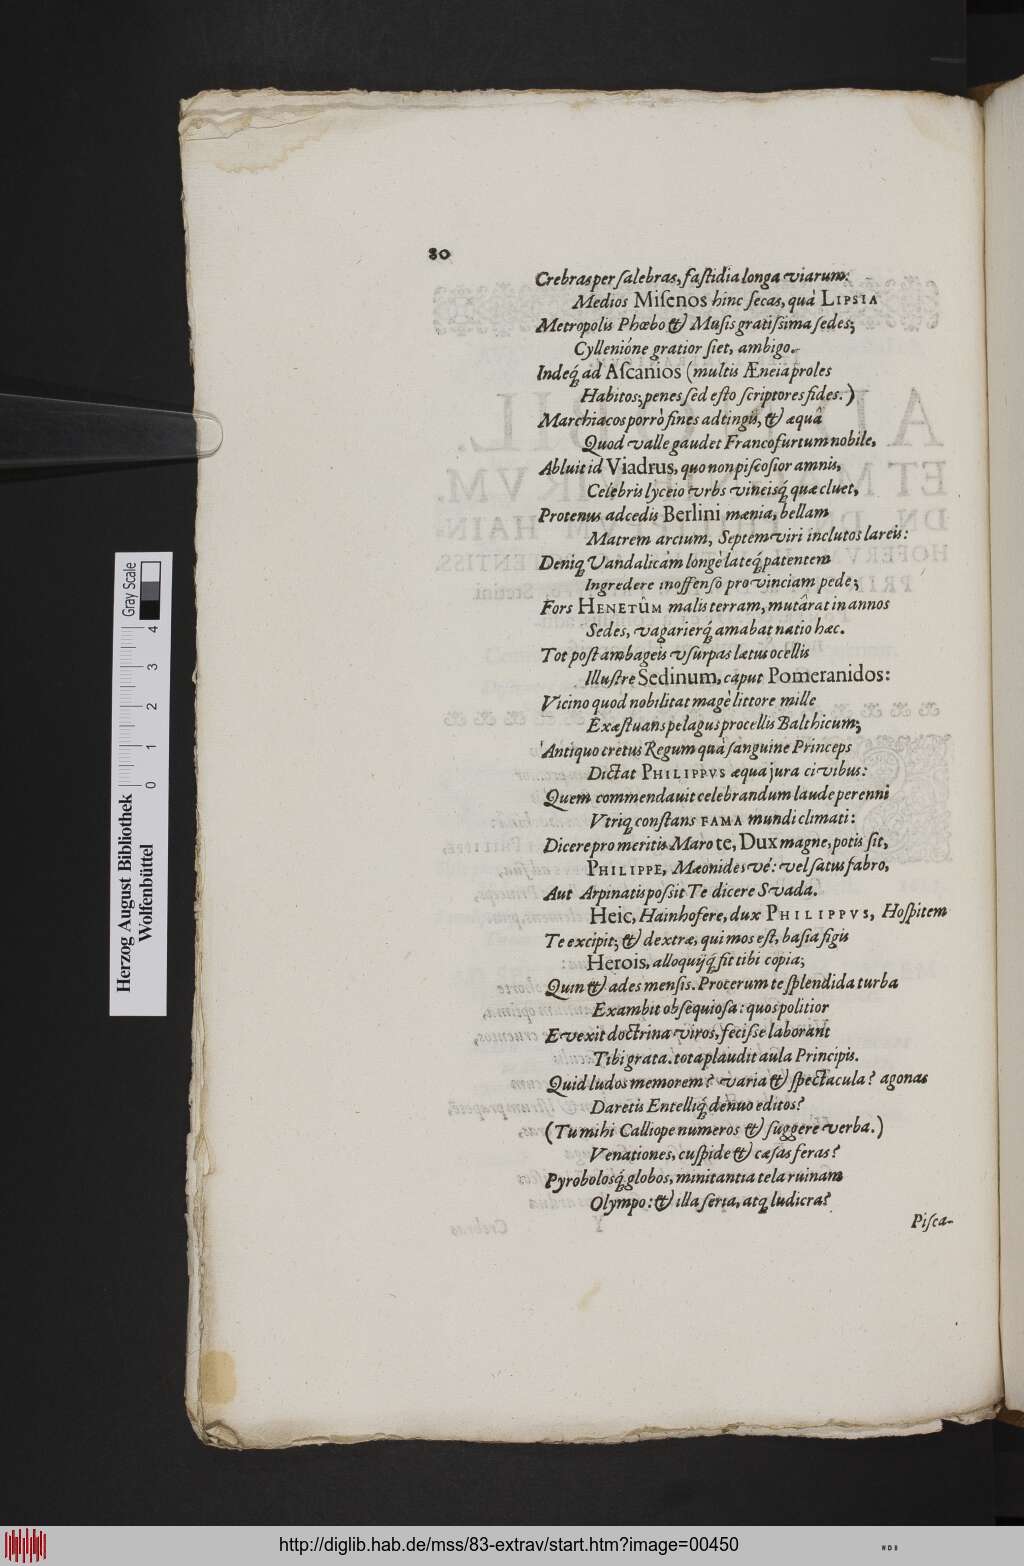 80
Crebras per ſalebras, faſtidia longa viarum:
Medios Miſenos hinc ſecas, quà LIPSIA
Metropolis Phœbo & Muſis gratiſsima ſedes;
Cyllenióne gratior ſiet, ambigo.
Indeq́ ad Aſcanios (multis Æneia proles
Habitos; penes ſed eſto ſcriptores fides.)
Marchiacos porrò fines adtingis, & æquâ
Quod valle gaudet Francofurtum nobile,
Abluit id Viadrus, quo non piſcoſior amnis,
Celebris lyceio vrbs vineisq́ quæ cluet,
Protenus adcedis Berlini mænia, bellam
Matrem arcium, Septemviri inclutos lareis:
Deniq Vandalicàm longè lateq́ patentem
Ingredere inoffenſo provinciam pede;
Fors HENETÛM malis terram, mutârat in annos
Sedes, vagarierq́ amabat natio hæc.
Tot poſt ambageis vſurpas lætus ocellis
Illuſtre Sedinum, caput Pomeranidos:
Vicino quod nobilitat magè littore mille
Exæſtuans pelagus procellis Balthicum;
Antiquo cretus Regum quà ſanguine Princeps
Dictat PHILIPPVS æqua jura civibus:
Quem commendauit celebrandum laude perenni
Vtriq conſtans FAMA mundi climati:
Dicere pro meritis Maro te, Dux magne, potis ſit,
PHILIPPE, Mæonides vé: vel ſatus fabro,
Aut Arpinatis poſsit Te dicere Svada.
Heic, Hainhofere, dux PHILIPPVS, Hoſpitem
Te excipit; & dextræ, qui mos eſt, baſia figis
Herois, alloquijq́ fit tibi copia;
Quin & ades menſis. Procerum te ſplendida turba
Exambit obſequioſa: quos politior
Evexit doctrina viros, feciſſe laborant
Tibi grata. tota plaudit aula Principis.
Quid ludos memorem? varia & ſpectacula? agonas
Daretis Entelliq́ denuo editos?
(Tu mihi Calliope numeros & ſuggere verba.)
Venationes, cuſpide & cæſas feras?
Pyrobolosq́ globos, minitantia tela ruinam
Olympo: & illa ſeria, atq ludicra?
Piſca-
Herzog August Bibliothek
Wolfenbüttel
0 1 2 3 4
Gray Scale
http://diglib.hab.de/mss/83-extrav/start.htm?image=00450